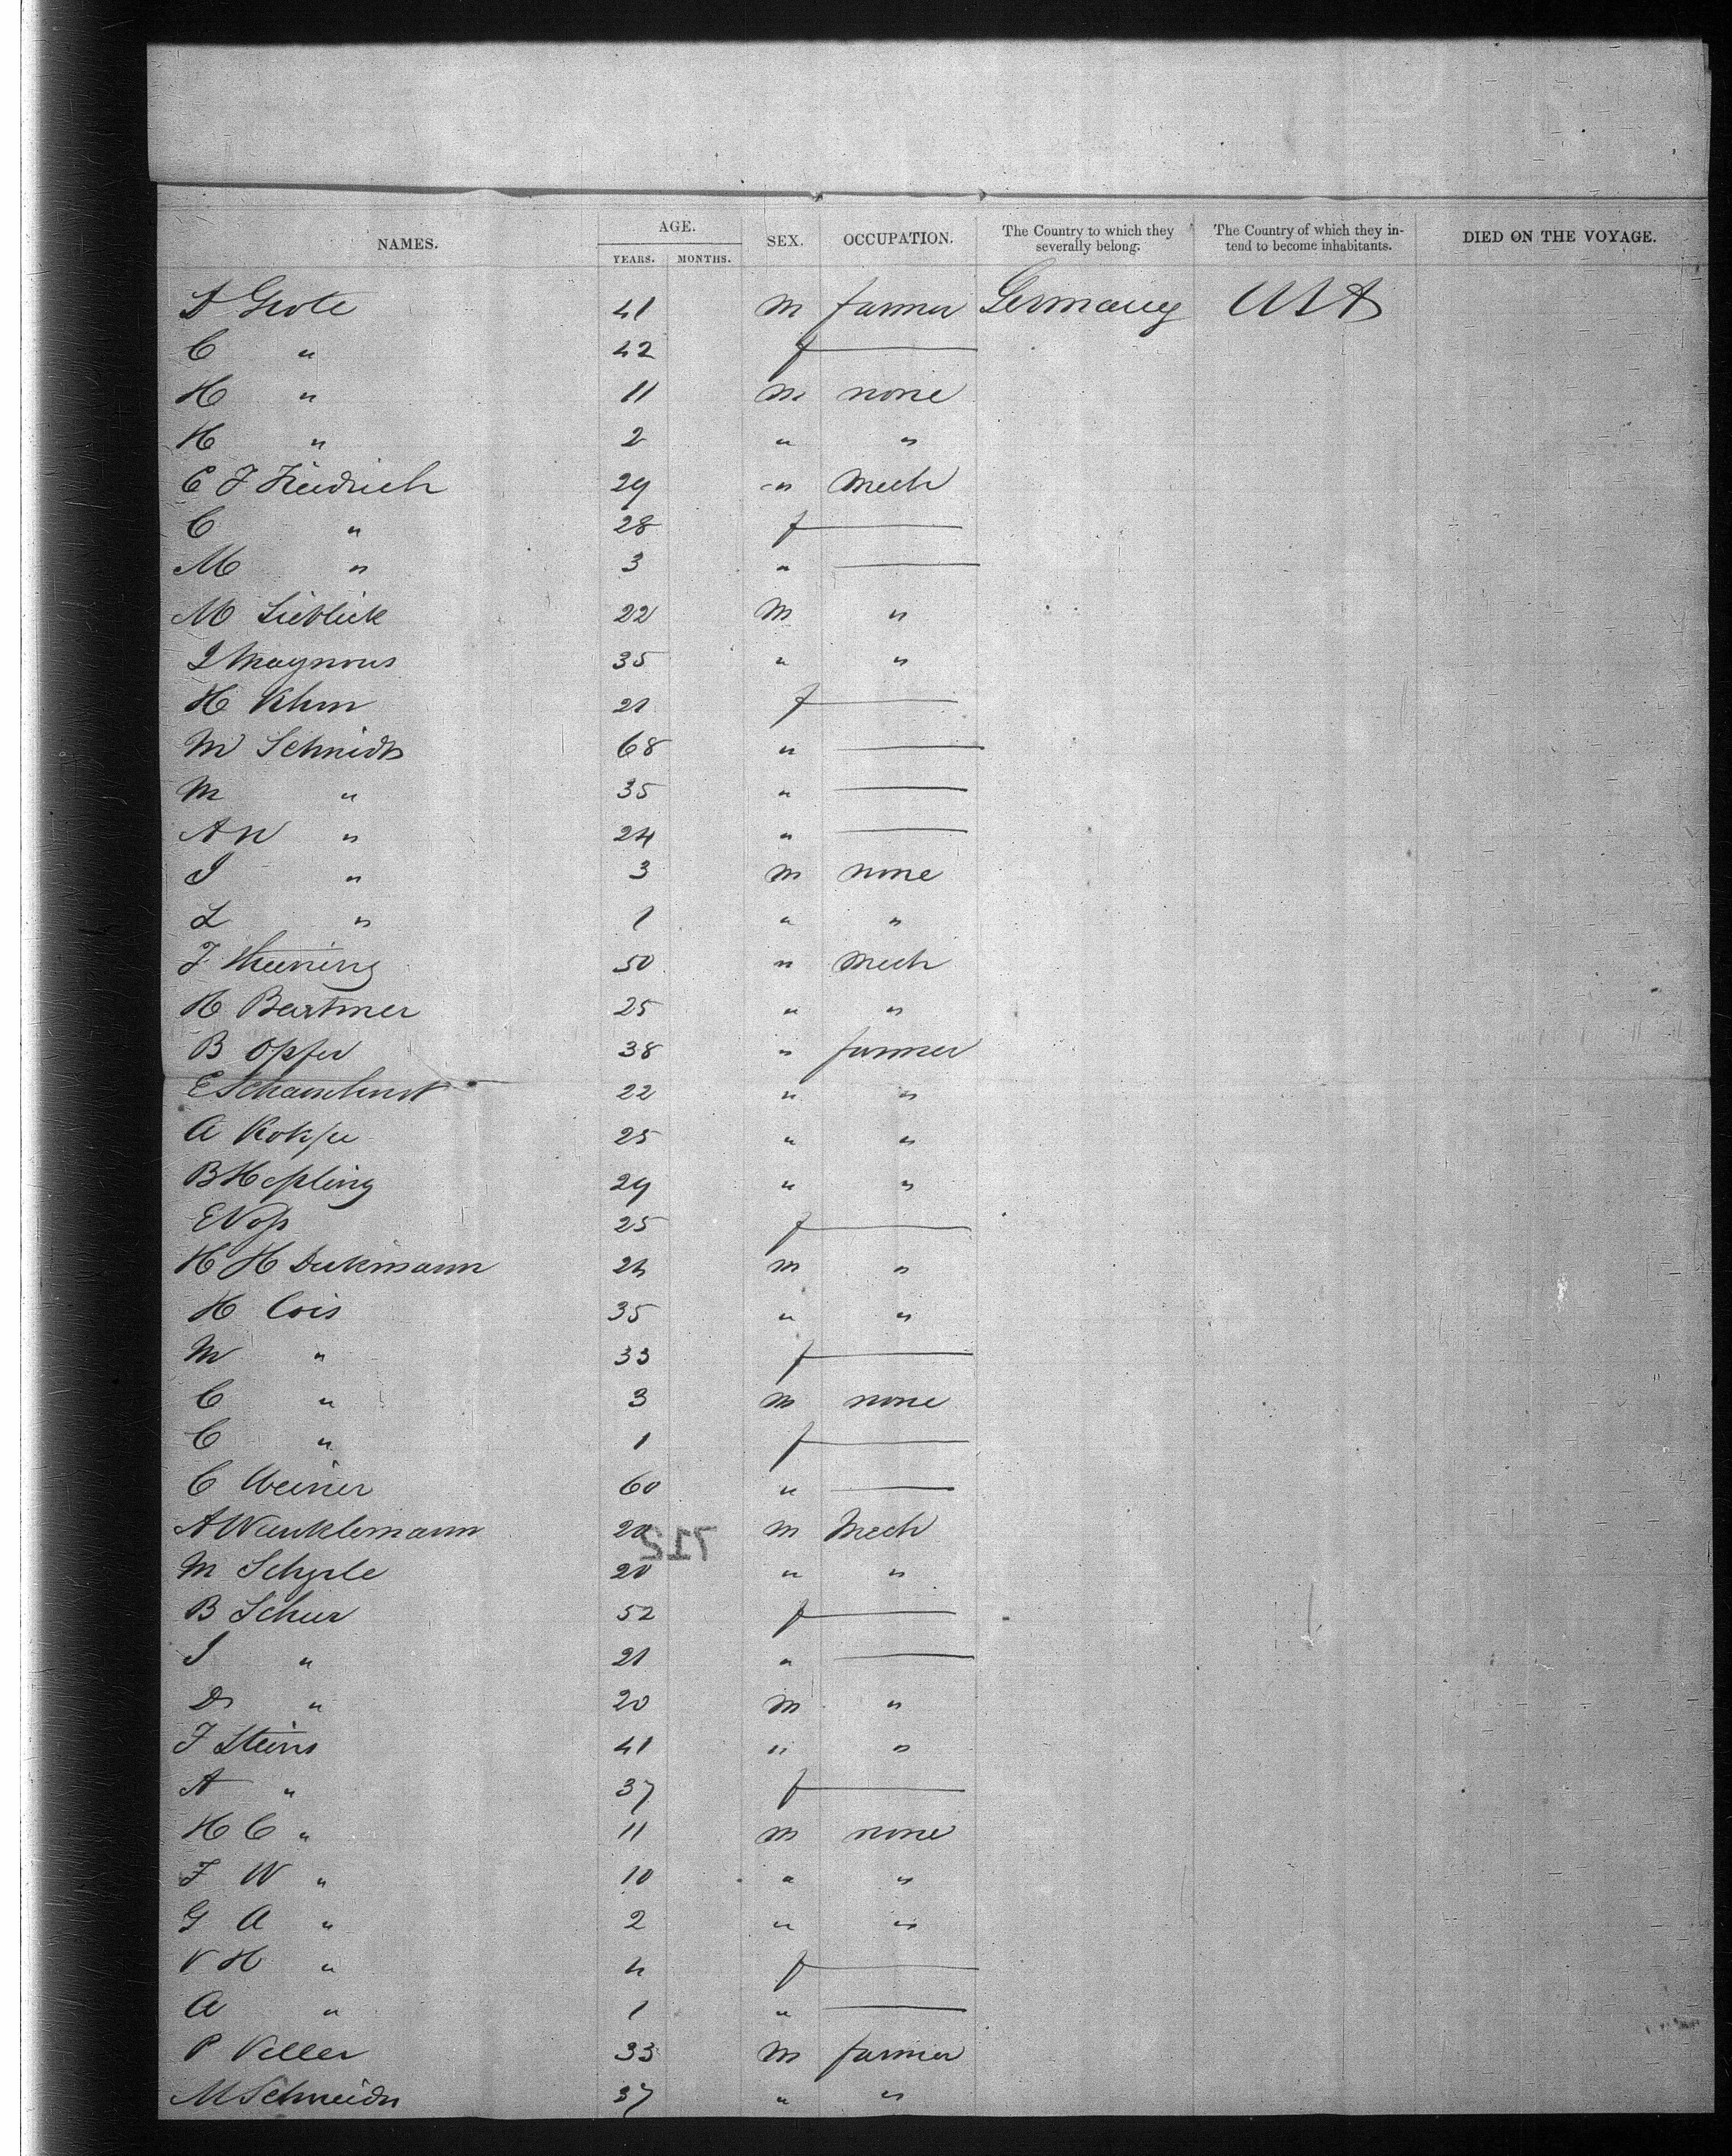 NAMES. AGE. SEX. OCCUPATION. The Country to which they severally belong. The Country of which they intend to become inhabitants. DIED ON THE VOYAGE.
YEARS. MONTHS.
A Grote 41 m farmer Germany USA
C " 42 f
H " 11 m none
H " 2 " "
C F Friedrich 29 " Mech
C " 28 f
M " 3 "
M Lieblick 22 m "
L Magnous 35 " "
H Klun 21 f
M Schmidt 68 "
M " 35 "
A W " 24 "
J " 3 m none
L " 1 " "
F 50 " Mech
H Bartmer 25 " "
B Opfer 38 " farmer
E Scharnhorst 22 " "
A 25 " "
B Hepling 29 " "
E Vop 25 f
H H Dukmann 24 m "
H Cois 35 " "
M " 33 f
C " 3 m none
C " 1 f
C Weiner 60 "
A Wunklemann 20 m Mech
712
M Schyle 20 " "
B Schur 52 f
J " 21 "
D " 20 m "
F Steins 41 " "
A " 37 f
H C " 11 m none
F W " 10 " "
G A " 2 " "
V H " 4 f
A " 1 "
P Keller 33 m farmer
M Schneider 37 " "